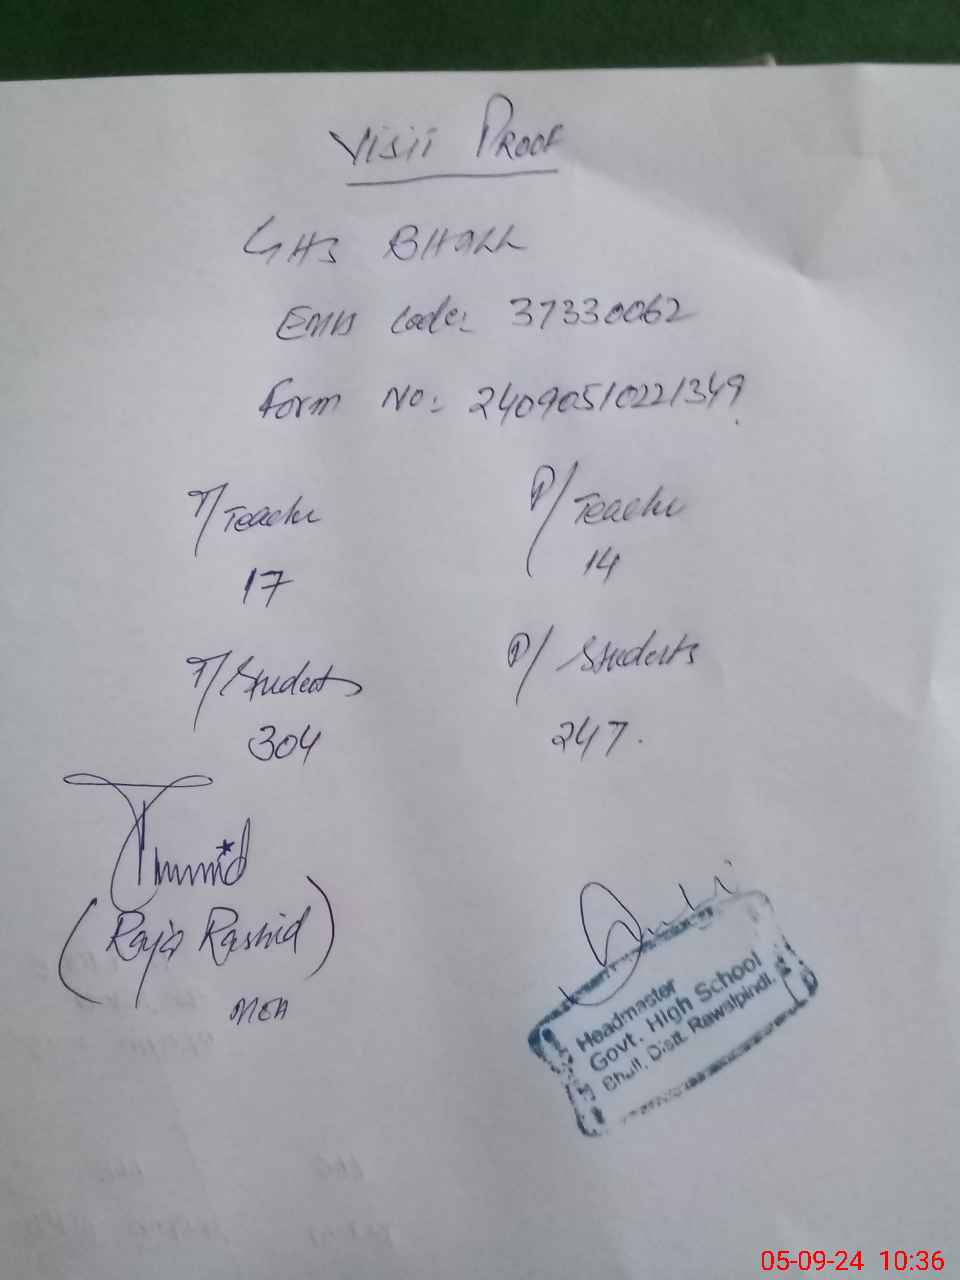 Visit Proof
GHS BHALL
EMIS Code: 37330062
Form No: 24090510221349
T/Teacher P/Teacher
17 14
T/Students P/Students
304 247.
(Raja Rashid)
MEA
Headmaster
Govt. High School
Bhall, Distt. Rawalpindi.
05-09-24 10:36